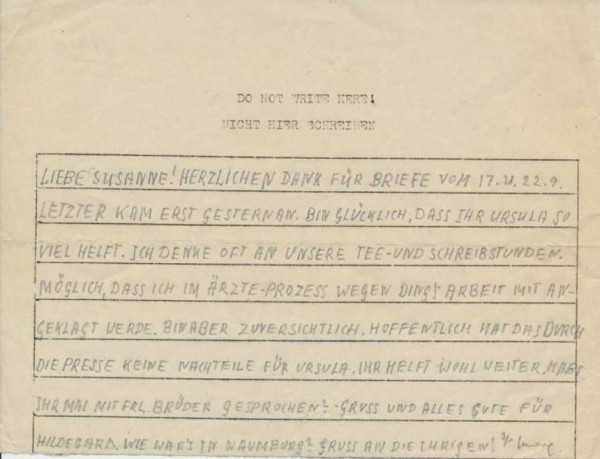 DO NOT WRITE HERE!
NICHT HIER SCHREIBEN
LIEBE SUSANNE! HERZLICHEN DANK FÜR BRIEFE VOM 17. U. 22.9.
LETZTER KAM ERST GESTERN AN. BIN GLÜCKLICH, DASS IHR URSULA SO
VIEL HELFT. ICH DENKE OFT AN UNSERE TEE- UND SCHREIBSTUNDEN.
MÖGLICH, DASS ICH IM ÄRZTE-PROZESS WEGEN DING'S ARBEIT MIT AN-
GEKLAGT WERDE. BIN ABER ZUVERSICHTLICH. HOFFENTLICH HAT DAS DURCH
DIE PRESSE KEINE NACHTEILE FÜR URSULA. IHR HELFT WOHL WEITER. HABT
IHR MAL MIT FRL. BRÜDER GESPROCHEN? - GRUSS UND ALLES GUTE FÜR
HILDEGARD. WIE WAR'S IN NAUMBURG? GRUSS AN DIE IHRIGEN!